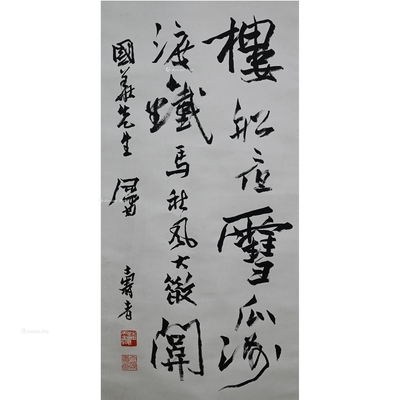 樓船夜雪瓜洲
渡鐵馬秋風大散關
國華先生